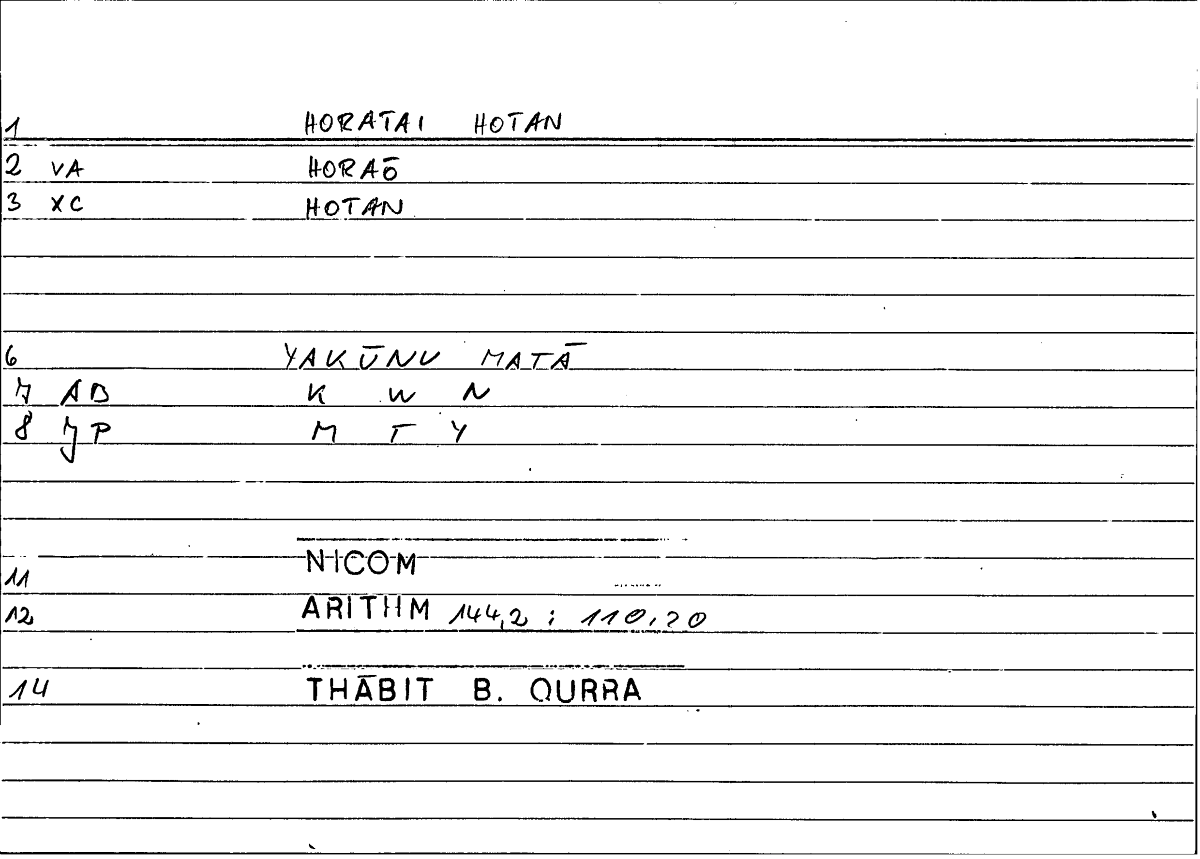 1 HORATAI HOTAN
2 VA HORAŌ
3 XC HOTAN
6 YAKŪNU MATĀ
7 AB K W N
8 JP M T Y
11 NICOM
12 ARITHM 144,2 ; 110,20
14 THĀBIT B. QURRA